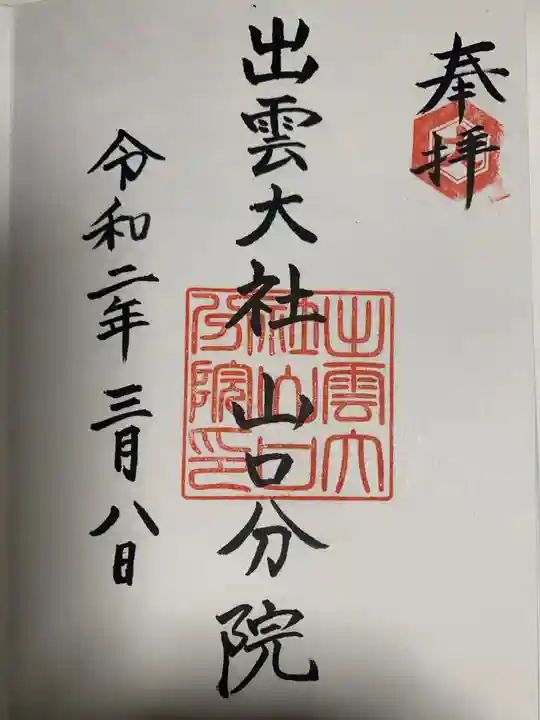 奉拝
出雲大社山口分院
出雲大
社山口
分院印
令和二年三月八日